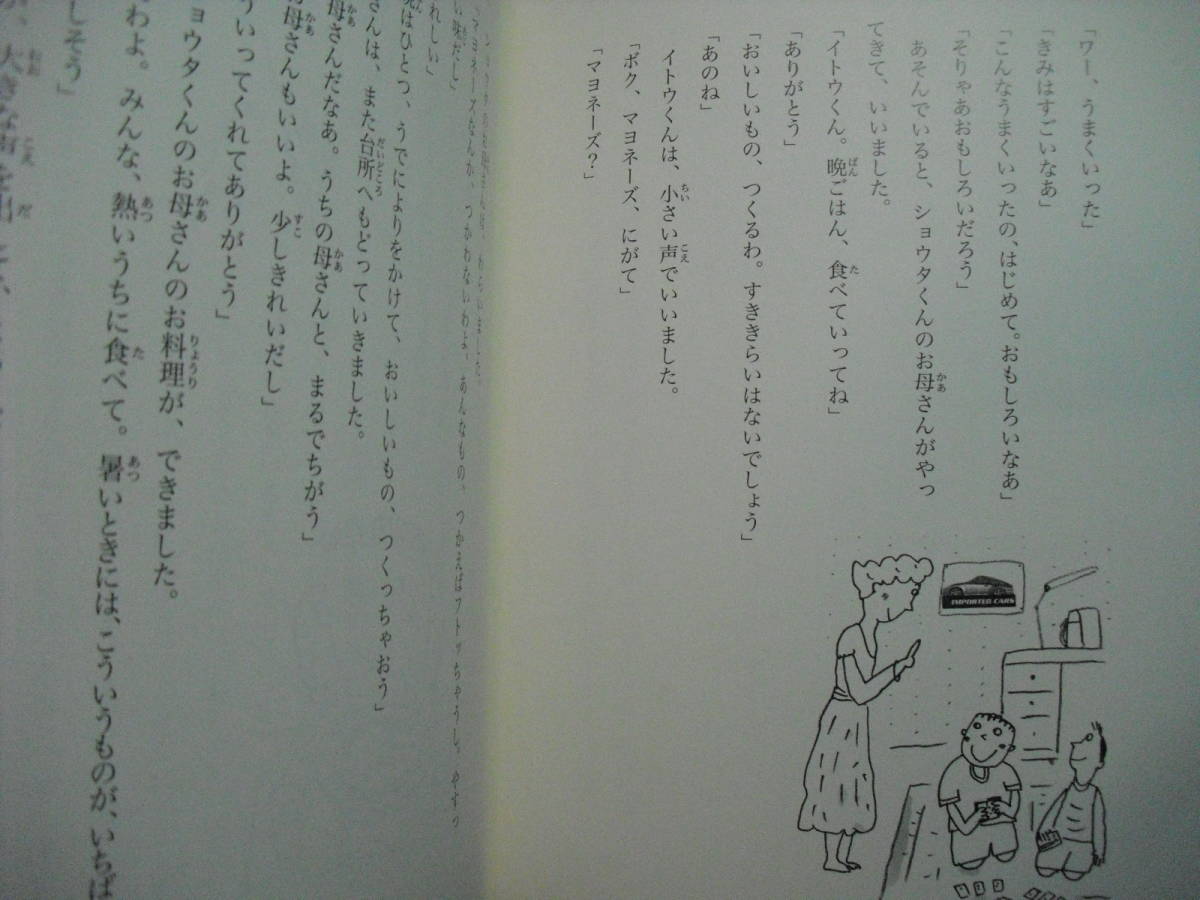 「ワー、うまくいった」
「きみはすごいなあ」
「こんなうまくいったの、はじめて。おもしろいなあ」
「そりゃあおもしろいだろう」
あそんでいると、ショウタくんのお母さんがやっ
てきて、いいました。
「イトウくん。晩ごはん、食べていってね」
「ありがとう」
「おいしいもの、つくるわ。すききらいはないでしょう」
「あのね」
イトウくんは、小さい声でいいました。
「ボク、マヨネーズ、にがて」
「マヨネーズ?」
IMPORTED CARS
マヨネーズなんか、つかわないわよ。あんなもの、つかえばフトッちゃうし。やすっ
い味だし」
れしい」
はひとつ、うでによりをかけて、おいしいもの、つくっちゃおう」
さんは、また台所へもどっていきました。
母さんだなあ。うちの母さんと、まるでちがう」
母さんもいいよ。少しきれいだし」
ういってくれてありがとう」
ョウタくんのお母さんのお料理が、できました。
わよ。みんな、熱いうちに食べて。暑いときには、こういうものが、いちば
しそう」
大きな声を出